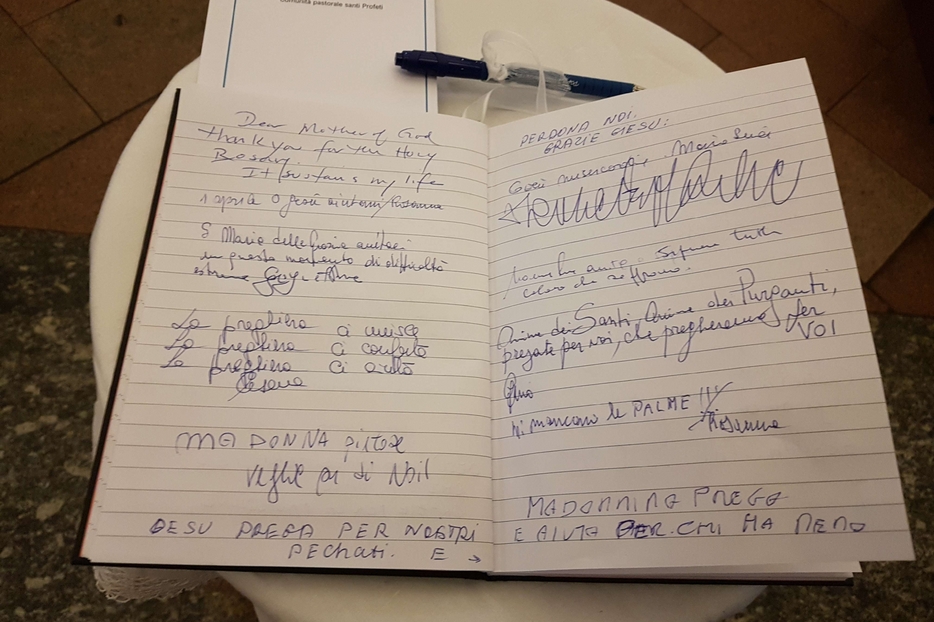 Comunità pastorale santi Profeti
Dear Mother of God
thank you for you Holy
Rosary.
It sustans my life
1 aprile O gesù aiutami Rosanna
S Maria delle Grazie aiutaci
in questo momento di difficoltà
estrema
La preghiera ci unisce
La preghiera ci conforta
La preghiera ci aiuta
MADONNA
veglia di Noi!
GESU PREGA PER NOSTRI
PEChati. E →
PERDONA NOI.
GRAZIE GIESU:
Gesù misericordia,
tutti
coloro che soffrono.
Anime dei Santi, Anime dei Purganti,
pregate per noi, che pregheremo per
VOI
mancano le PALME !!!
Rosanna
MADONNINA PREGA
E AIUTA PER. CHI HA MENO